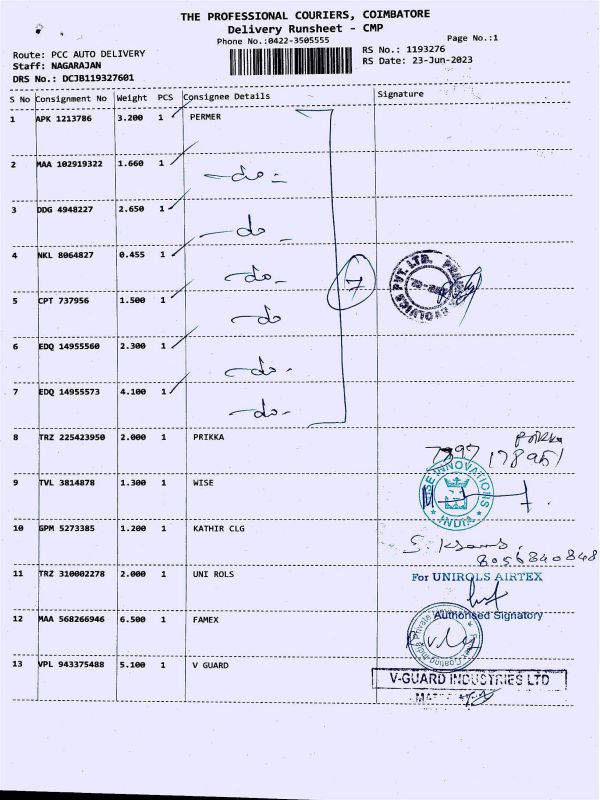 THE PROFESSIONAL COURIERS, COIMBATORE
Delivery Runsheet - CMP
Phone No.:0422-3505555
Page No.:1
Route: PCC AUTO DELIVERY
RS No.: 1193276
Staff: NAGARAJAN
RS Date: 23-Jun-2023
DRS No.: DCJB119327601
S No Consignment No Weight PCS Consignee Details Signature
1 APK 1213786 3.200 1 PERMER
2 MAA 102919322 1.660 1 -do-
3 DDG 4948227 2.650 1 -do-
4 NKL 8064827 0.455 1 -do-
7
5 CPT 737956 1.500 1 -do
6 EDQ 14955560 2.300 1 -do-
7 EDQ 14955573 4.100 1 -do-
8 TRZ 225423950 2.000 1 PRIKKA
9 TVL 3814878 1.300 1 WISE
WISE INNOVATIONS
INDIA
10 GPM 5273385 1.200 1 KATHIR CLG
8056840848
11 TRZ 310002278 2.000 1 UNI ROLS
For UNIROLS AIRTEX
Authorised Signatory
12 MAA 568266946 6.500 1 FAMEX
13 VPL 943375488 5.100 1 V GUARD
V-GUARD INDUSTRIES LTD